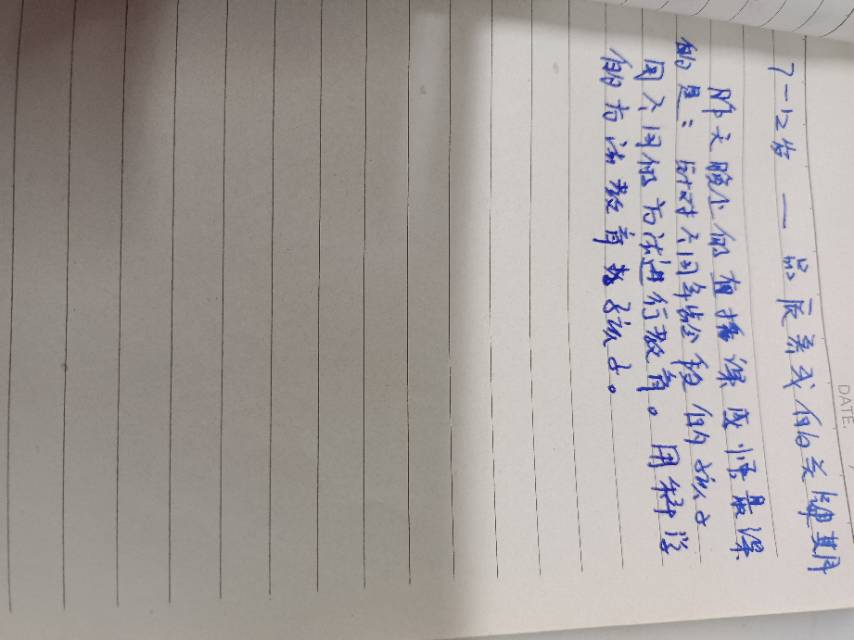 DATE.
7-12岁 — 品质养成的关键期
昨天晚上的直播课感悟最深
的是：针对不同年龄段的孩子
用不同的方法进行教育。用科学
的方法教育孩子。